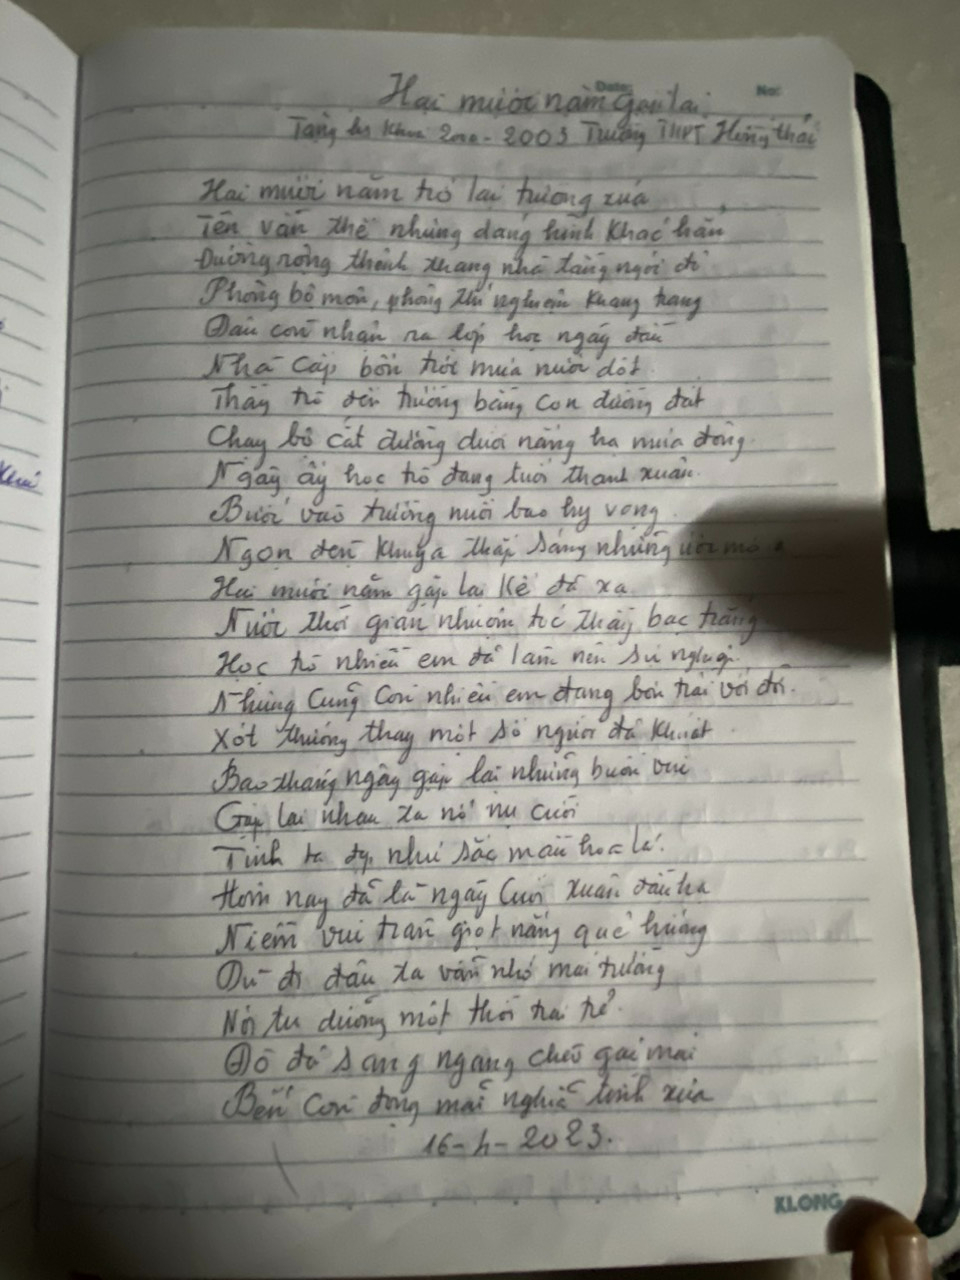 Hai mươi năm gặp lại
Date:
No:
Tặng hs Khoá 2000-2003 Trường THPT Hồng Thái
Hai mươi năm trở lại trường xưa
Tên vẫn thế nhưng dáng hình khác hẳn
Đường rộng thênh thang nhà tầng ngói đỏ
Phòng bộ môn, phòng thí nghiệm khang trang
Đâu còn nhận ra lớp học ngày đầu
Nhà cấp bốn trời mưa nước dột.
Thầy trò đến trường bằng con đường đất
Chạy bộ cắt đường dưới nắng hạ mưa đông.
Ngày ấy học trò đang tuổi thanh xuân.
Bước vào trường nuôi bao hy vọng.
Ngọn đèn khuya thắp sáng những ước mơ
Hai mươi năm gặp lại kẻ đã xa
Nước thời gian nhuộm tóc thầy bạc trắng
Học trò nhiều em đã làm nên sự nghiệp.
Nhưng cũng còn nhiều em đang bôn trải với đời.
Xót thương thay một số người đã khuất.
Bao tháng ngày gặp lại những buồn vui
Gặp lại nhau ta nở nụ cười
Tình ta đẹp như sắc màu hoa
Hôm nay đã là ngày cuối xuân đầu hạ
Niềm vui tràn giọt nắng quê hương
Dù đi đâu ta vẫn nhớ mái trường
Nơi tu dưỡng một thời trai trẻ.
Đò đã sang ngang chèo gác mái
Bến còn đọng mãi nghĩa tình xưa
16-4-2023.
KLONG